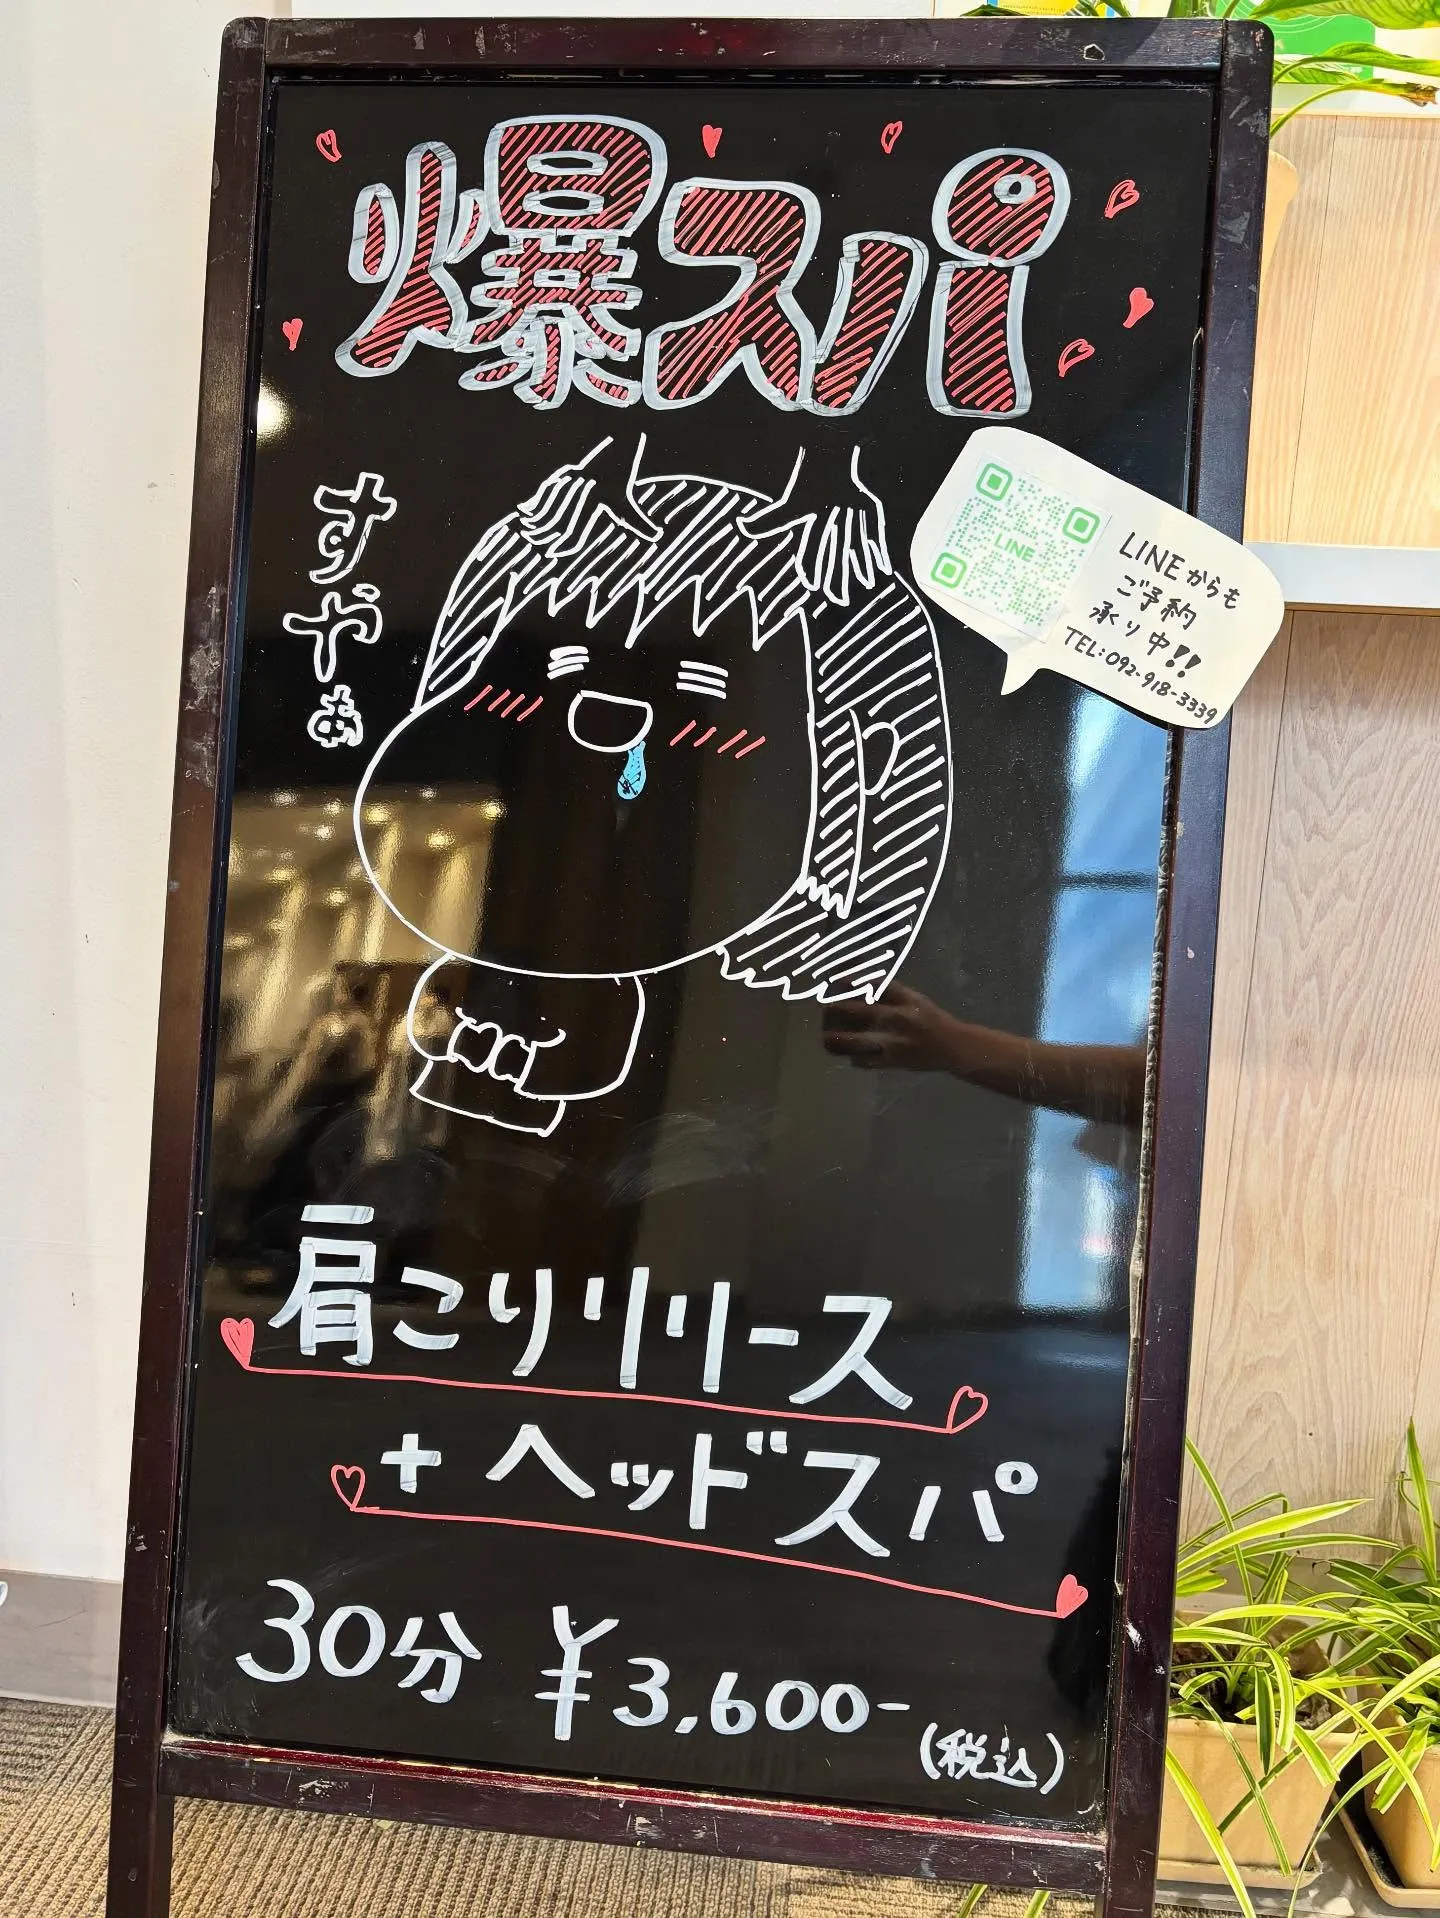 爆スパ
すやぁ
LINE
LINEからも
ご予約
承り中!!
TEL:092-918-3339
肩こりリリース
+ ヘッドスパ
30分 ¥3,600-
(税込)